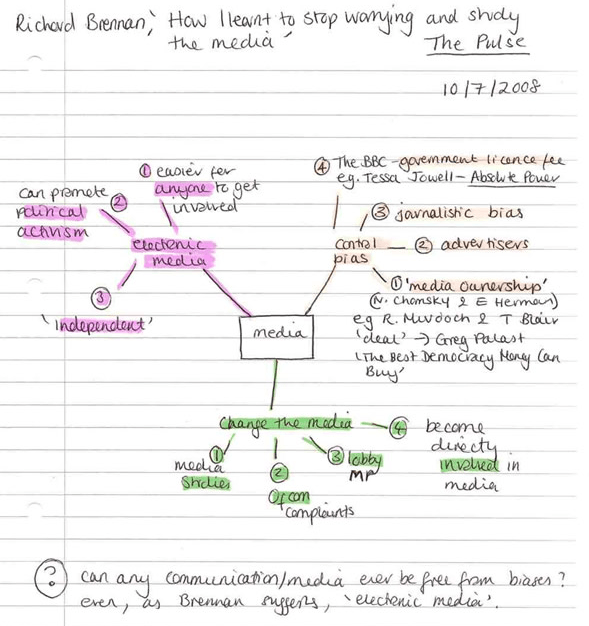 Richard Brennan, 'How I learnt to stop worrying and study
the media'
The Pulse
10/7/2008
① easier for
anyone to get
involved
can promote ②
political
activism
electronic
media
③
'independent'
④ The BBC - government licence fee
eg. Tessa Jowell - Absolute Power
③ journalistic bias
control — ② advertisers
bias
① 'media ownership'
(N. Chomsky & E Herman)
eg R. Murdoch & T Blair
'deal' → Greg Palast
'The Best Democracy Money Can
Buy'
media
Change the media
④ become
directly
involved in
media
①
media
studies
②
Ofcom
complaints
③ lobby
MP
? can any communication/media ever be free from biases?
even, as Brennan suggests, 'electronic media'.